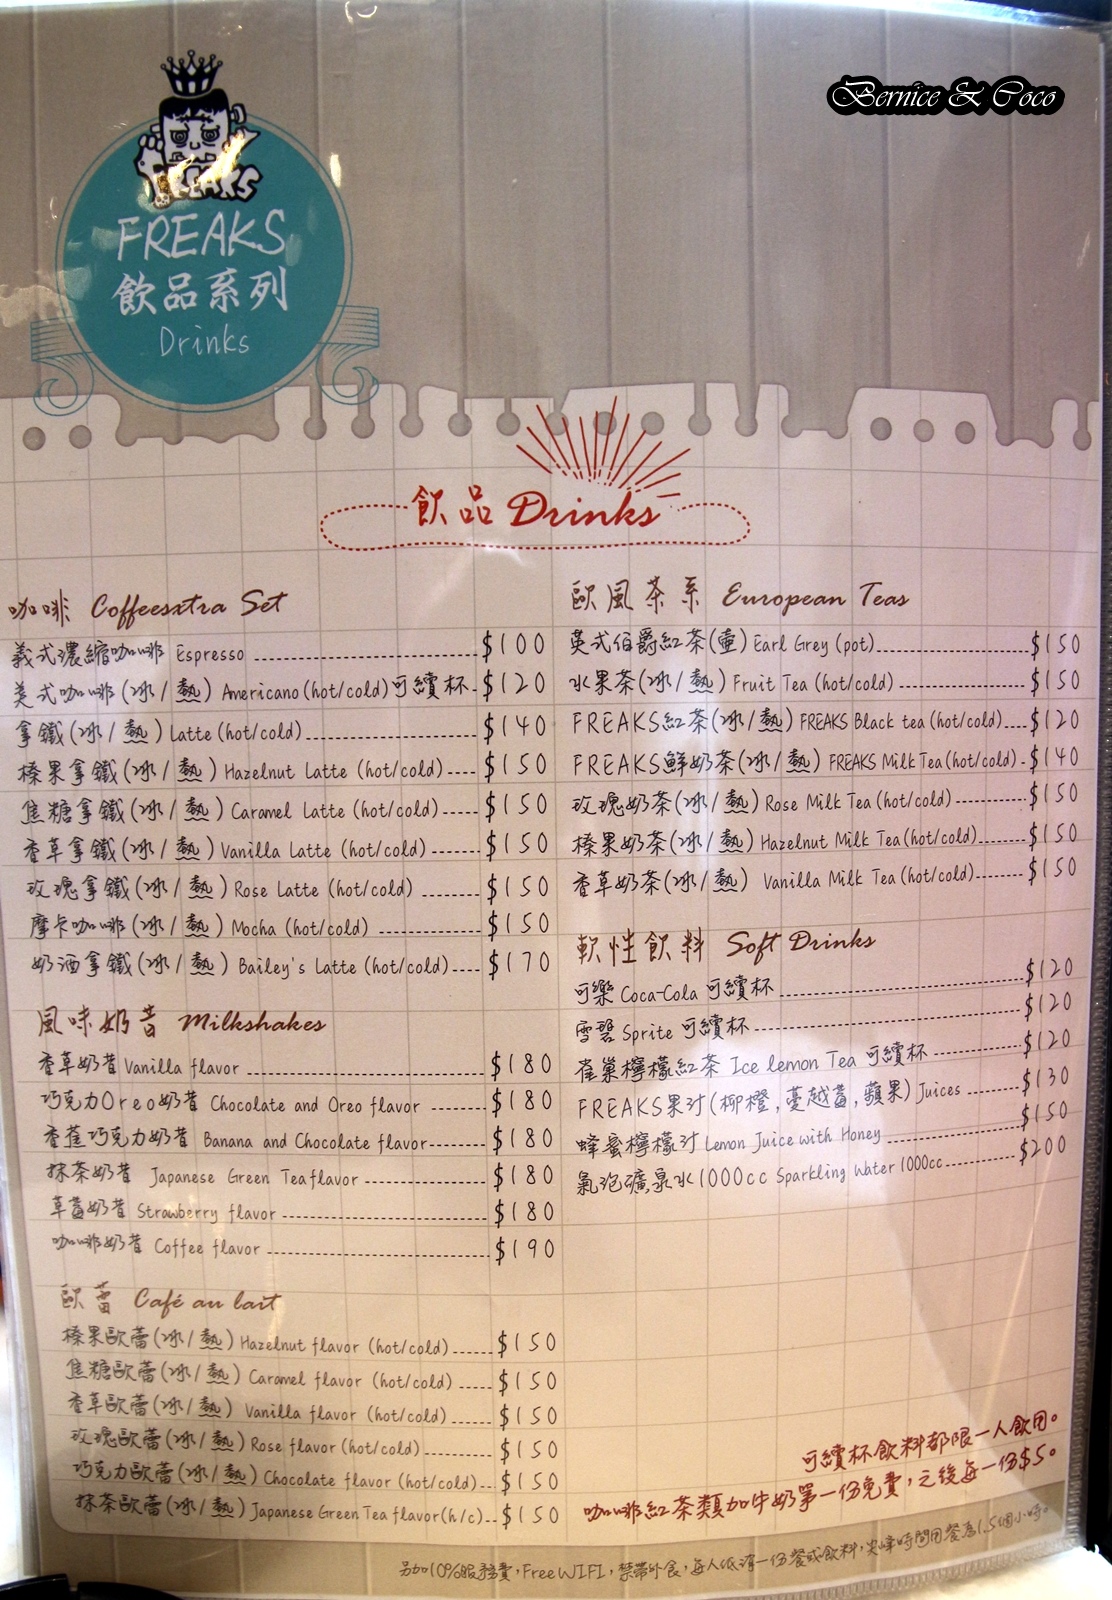 Bernice & Coco
FREAKS
FREAKS
飲品系列
Drinks
飲品 Drinks
咖啡 Coffeesxtra Set
義式濃縮咖啡 Espresso $100
美式咖啡(冰/熱) Americano(hot/cold)可續杯 $120
拿鐵(冰/熱) Latte(hot/cold) $140
榛果拿鐵(冰/熱) Hazelnut Latte (hot/cold) $150
焦糖拿鐵(冰/熱) Caramel Latte (hot/cold) $150
香草拿鐵(冰/熱) Vanilla Latte (hot/cold) $150
玫瑰拿鐵(冰/熱) Rose Latte (hot/cold) $150
摩卡咖啡(冰/熱) Mocha (hot/cold) $150
奶酒拿鐵(冰/熱) Bailey's Latte (hot/cold) $170
風味奶昔 Milkshakes
香草奶昔 Vanilla flavor $180
巧克力Oreo奶昔 Chocolate and Oreo flavor $180
香蕉巧克力奶昔 Banana and Chocolate flavor $180
抹茶奶昔 Japanese Green Tea flavor $180
草莓奶昔 Strawberry flavor $180
咖啡奶昔 Coffee flavor $190
歐蕾 Café au lait
榛果歐蕾(冰/熱) Hazelnut flavor (hot/cold) $150
焦糖歐蕾(冰/熱) Caramel flavor (hot/cold) $150
香草歐蕾(冰/熱) Vanilla flavor (hot/cold) $150
玫瑰歐蕾(冰/熱) Rose flavor (hot/cold) $150
巧克力歐蕾(冰/熱) Chocolate flavor (hot/cold) $150
抹茶歐蕾(冰/熱) Japanese Green Tea flavor(h/c) $150
歐風茶系 European Teas
英式伯爵紅茶(壺) Earl Grey (pot) $150
水果茶(冰/熱) Fruit Tea (hot/cold) $150
FREAKS紅茶(冰/熱) FREAKS Black tea (hot/cold) $120
FREAKS鮮奶茶(冰/熱) FREAKS Milk Tea (hot/cold) $140
玫瑰奶茶(冰/熱) Rose Milk Tea (hot/cold) $150
榛果奶茶(冰/熱) Hazelnut Milk Tea (hot/cold) $150
香草奶茶(冰/熱) Vanilla Milk Tea (hot/cold) $150
軟性飲料 Soft Drinks
可樂 Coca-Cola 可續杯 $120
雪碧 Sprite 可續杯 $120
雀巢檸檬紅茶 Ice lemon Tea 可續杯 $120
FREAKS果汁(柳橙,蔓越莓,蘋果) Juices $130
蜂蜜檸檬汁 Lemon Juice with Honey $150
氣泡礦泉水1000cc Sparkling Water 1000cc $200
可續杯飲料都限一人飲用。
咖啡紅茶類加牛奶第一份免費,之後每一份$5。
另加10%服務費,Free WIFI,禁帶外食,每人低消一份餐或飲料,尖峰時間用餐為1.5個小時。